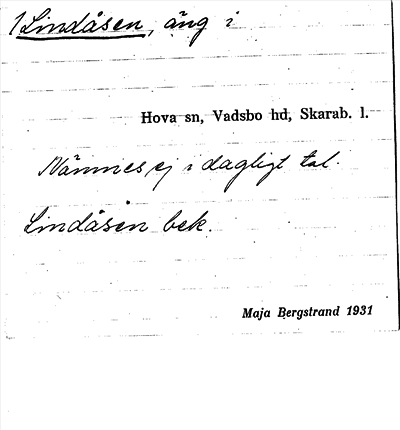 1 Lindåsen, äng i
Hova sn, Vadsbo hd, Skarab. l.
Nämnes ej i dagligt tal.
Lindåsen bek.
Maja Bergstrand 1931